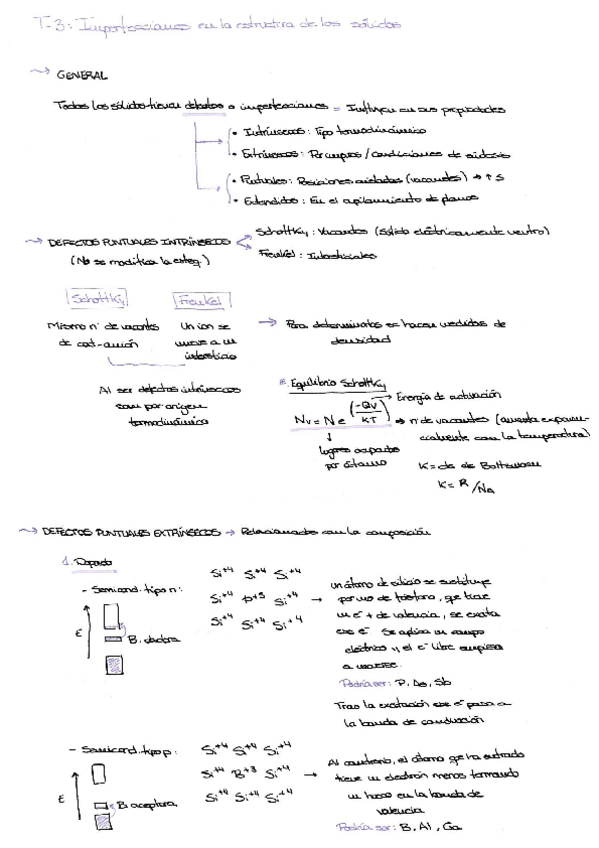 T-3: Imperfecciones en la estructura de los sólidos
GENERAL
Todos los sólidos tienen defectos o imperfecciones = Influyen en sus propiedades
• Intrínsecos: Tipo termodinámico
• Extrínsecos: Por impurezas / condiciones de síntesis
• Puntuales: Posiciones aisladas (vacantes) → ↑ S
• Extendidos: En el apilamiento de planos
DEFECTOS PUNTUALES INTRÍNSECOS
(No se modifica la esteq.)
Schottky: Vacantes (Sólido eléctricamente neutro)
Frenkel: Intersticiales
Schottky
Frenkel
Mismo nº de vacantes de cat-anión
Un ion se mueve a un intersticio
→ Para determinarlos se hacen medidas de densidad
Al ser defectos intrínsecos son por origen termodinámico
* Equilibrio Schottky
Energía de activación
Nv = N e (-Qv/KT) → nº de vacantes (aumenta exponencialmente con la temperatura)
lugares ocupados por átomo
K = cte de Boltzmann
K = R/Na
DEFECTOS PUNTUALES EXTRÍNSECOS → Relacionados con la composición
1. Dopado
- Semicond. tipo n:
E
B. dadora
Si+4 Si+4 Si+4
Si+4 P+5 Si+4 →
Si+4 Si+4 Si+4
un átomo de silicio se sustituye
por uno de fósforo, que trae
un e- + de valencia, se excita
ese e- Se aplica un campo
eléctrico y el e- libre empieza
a moverse.
Podría ser: P, As, Sb
Tras la excitación ese e- pasa a
la banda de conducción
- Semicond. tipo p:
E
B. aceptora
Si+4 Si+4 Si+4
Si+4 B+3 Si+4 →
Si+4 Si+4 Si+4
Al contrario, el átomo que ha entrado
tiene un electrón menos formando
un hueco en la banda de
valencia
Podría ser: B, Al, Ga